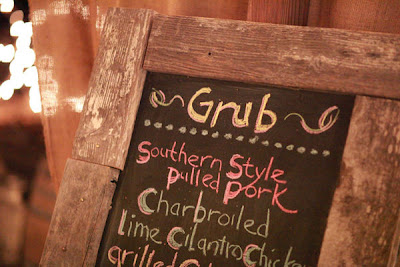 Grub
Southern Style
Pulled Pork
Charbroiled
Lime Cilantro
grilled